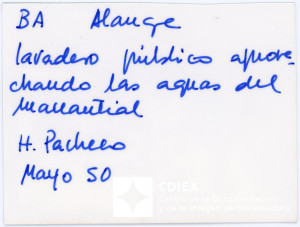 BA Alange
lavadero público aprove-
chando las aguas del
manantial
H. Pacheco
Mayo 50
CDIEX